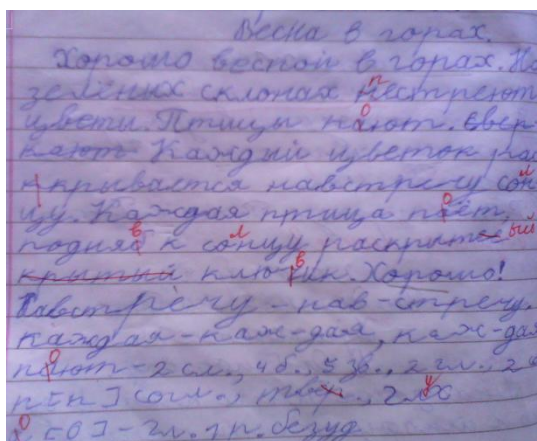 Весна в горах.
Хорошо весной в горах. На
зелёных склонах пестреют
цветы. Птицы поют. Свер-
кают Каждый цветок рас
крывается навстречу сон
цу. Каждая птица поёт,
подняв к сонцу раскрыт ый
крытый клювик. Хорошо!
Навстречу - нав-стречу.
каждая - каж-дая, каж-дая
поют - 2 сл., 4 б., 5 зв., 2 гл., 2 с
п [п] согл., глух
о [о] - гл. безуд